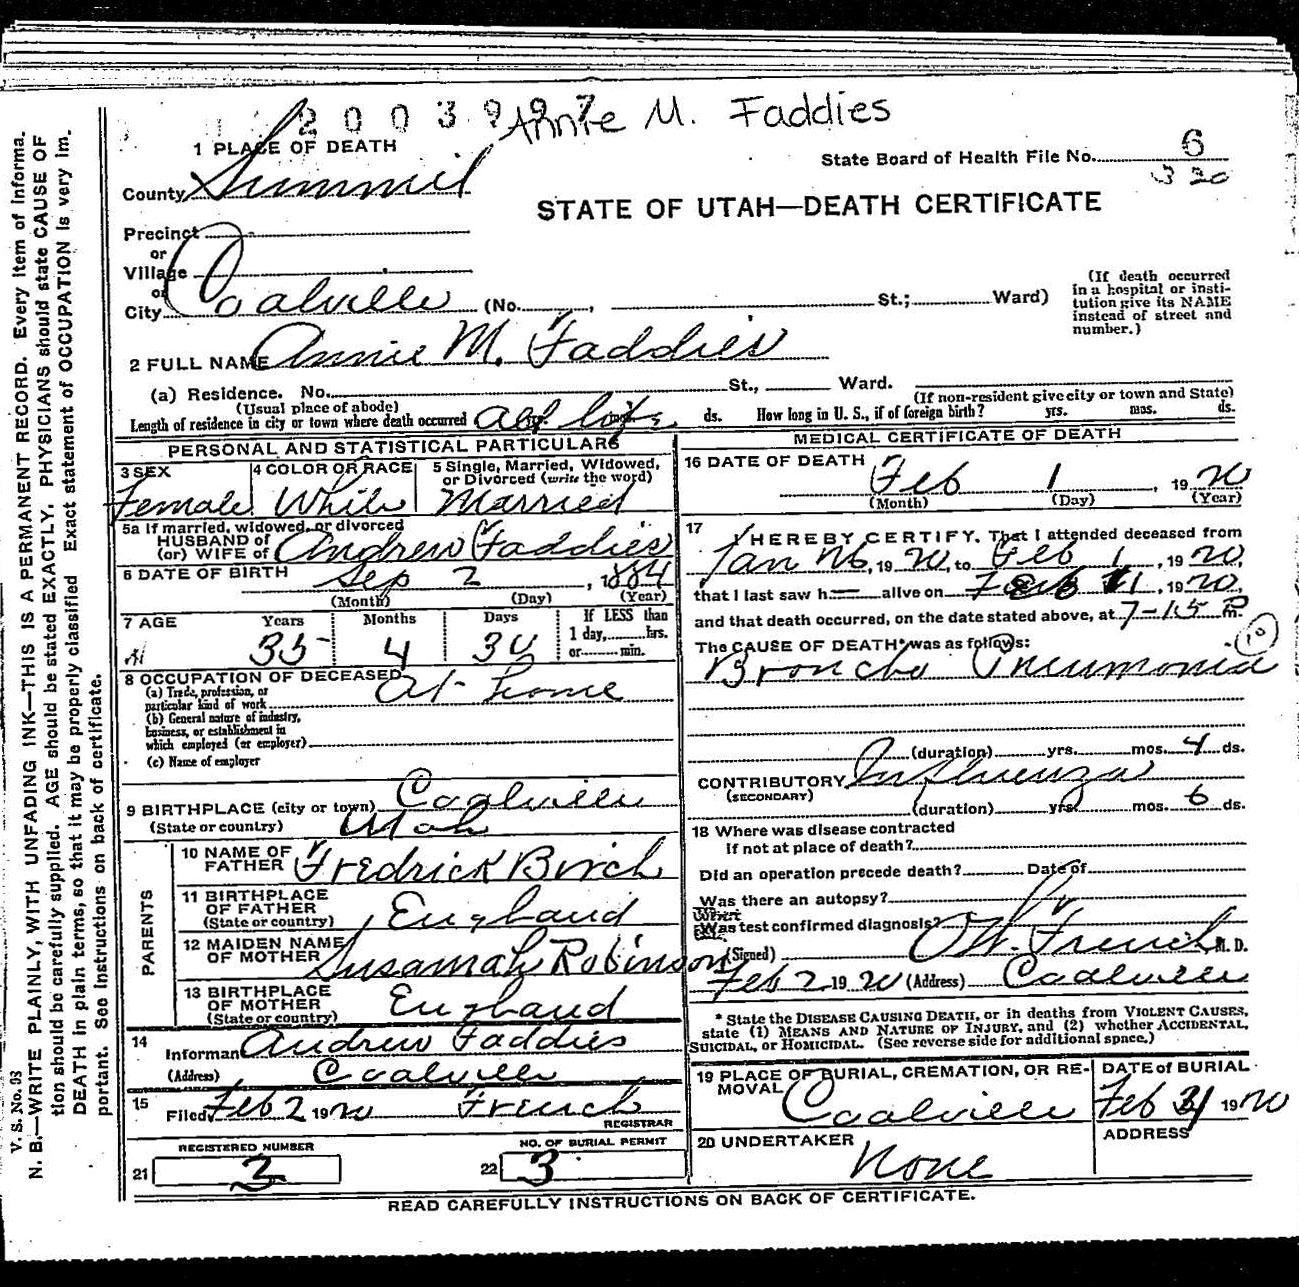 2003997 Annie M. Faddies
1 PLACE OF DEATH
State Board of Health File No. 6
320
County Summit
STATE OF UTAH—DEATH CERTIFICATE
Precinct
or
Village
or
City Coalville (No. , St.; Ward)
(If death occurred in a hospital or insti-
tution give its NAME
instead of street and
number.)
2 FULL NAME Annie M. Faddies
(a) Residence. No. St., Ward.
(Usual place of abode) (If non-resident give city or town and State)
Length of residence in city or town where death occurred all life ds. How long in U. S., if of foreign birth? yrs. mos. ds.
PERSONAL AND STATISTICAL PARTICULARS
3 SEX Female
4 COLOR OR RACE White
5 Single, Married, Widowed,
or Divorced (write the word)
Married
5a If married, widowed, or divorced
HUSBAND of
(or) WIFE of Andrew Faddies
6 DATE OF BIRTH Sep 2, 1884
(Month) (Day) (Year)
7 AGE Years Months Days If LESS than
1 day, hrs.
or min.
35 4 30
8 OCCUPATION OF DECEASED
(a) Trade, profession, or
particular kind of work At home
(b) General nature of industry,
business, or establishment in
which employed (or employer)
(c) Name of employer
9 BIRTHPLACE (city or town) Coalville
(State or country) Utah
PARENTS
10 NAME OF
FATHER Fredrick Birch
11 BIRTHPLACE
OF FATHER
(State or country) England
12 MAIDEN NAME
OF MOTHER Susannah Robinson
13 BIRTHPLACE
OF MOTHER
(State or country) England
14
Informant Andrew Faddies
(Address) Coalville
15
Filed Feb 2 1920 French
REGISTRAR
REGISTERED NUMBER
21 3
NO. OF BURIAL PERMIT
22 3
MEDICAL CERTIFICATE OF DEATH
16 DATE OF DEATH
Feb 1, 1920
(Month) (Day) (Year)
17 I HEREBY CERTIFY, That I attended deceased from
Jan 26, 1920, to Feb 1, 1920,
that I last saw h alive on Feb 1, 1920,
and that death occurred, on the date stated above, at 7-15 P m.
The CAUSE OF DEATH* was as follows:
10
Broncho Pneumonia
(duration) yrs. mos. 4 ds.
CONTRIBUTORY Influenza
(SECONDARY)
(duration) yrs. mos. 6 ds.
18 Where was disease contracted
If not at place of death?
Did an operation precede death? Date of
Was there an autopsy?
What test confirmed diagnosis?
(Signed) O.W. French, M. D.
Feb 2 1920 (Address) Coalville
* State the DISEASE CAUSING DEATH, or in deaths from VIOLENT CAUSES,
state (1) MEANS AND NATURE OF INJURY, and (2) whether ACCIDENTAL,
SUICIDAL, or HOMICIDAL. (See reverse side for additional space.)
19 PLACE OF BURIAL, CREMATION, OR RE-
MOVAL Coalville
DATE of BURIAL
Feb 1920
20 UNDERTAKER
None
ADDRESS
READ CAREFULLY INSTRUCTIONS ON BACK OF CERTIFICATE.
V. S. No. 93
N. B.—WRITE PLAINLY, WITH UNFADING INK—THIS IS A PERMANENT RECORD. Every item of informa-
tion should be carefully supplied. AGE should be stated EXACTLY. PHYSICIANS should state CAUSE OF
DEATH in plain terms, so that it may be properly classified Exact statement of OCCUPATION is very im-
portant. See instructions on back of certificate.